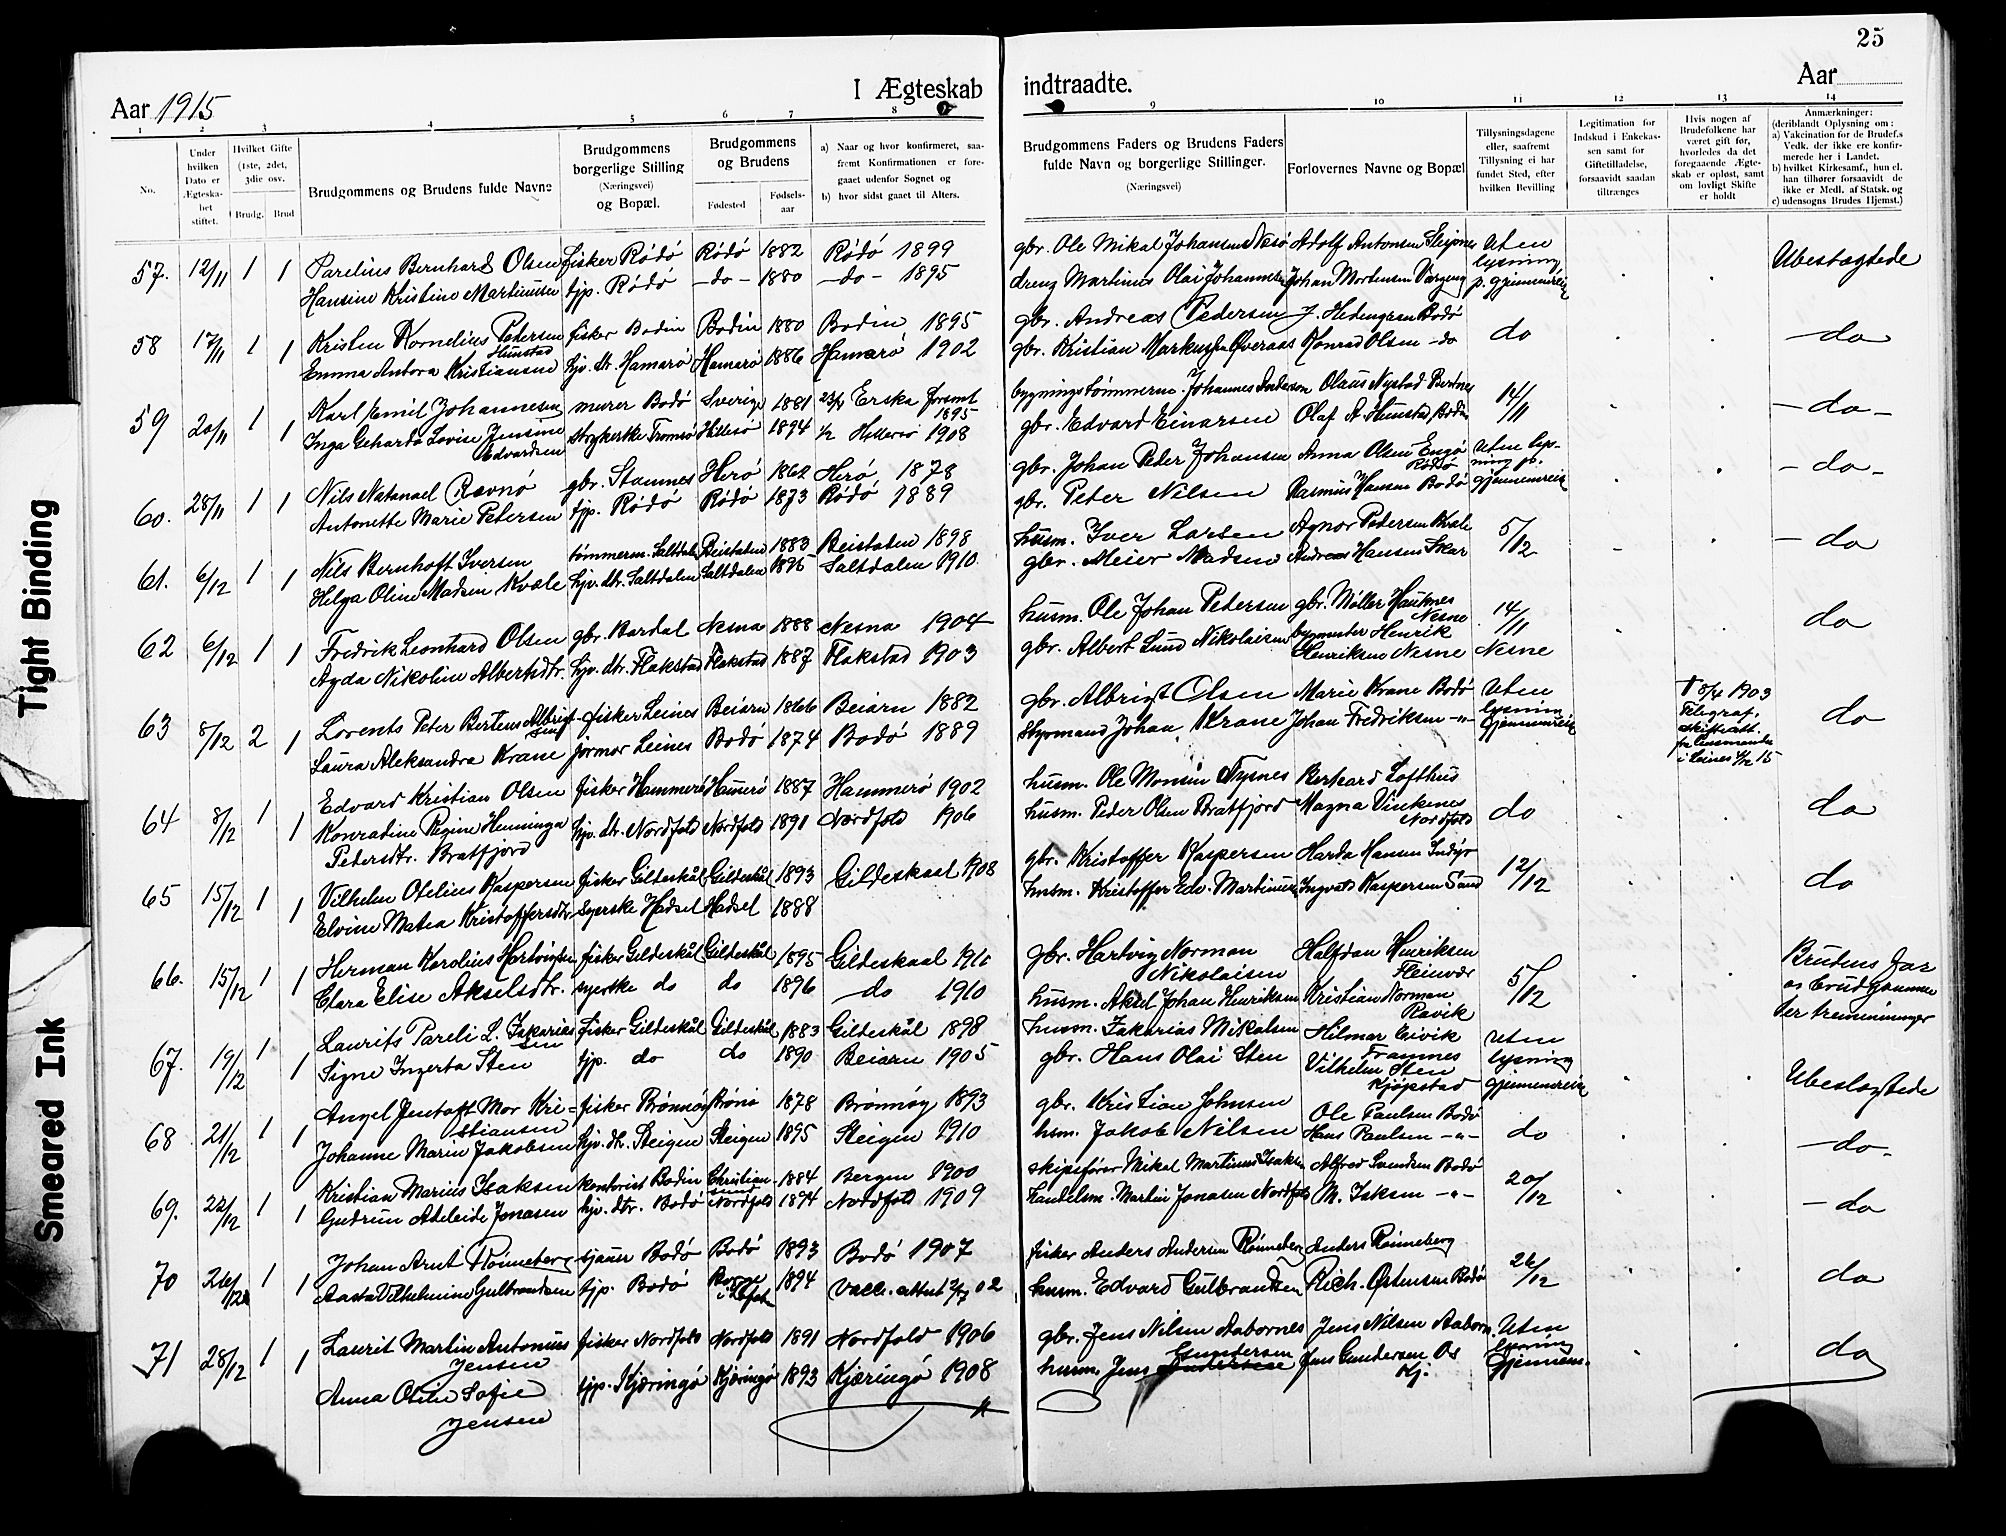 25
Aar 1915
I Ægteskab indtraadte.
Aar
1 2 3 4 5 6 7 8 9 10 11 12 13 14
No.
Under hvilken Dato er Ægteskabet stiftet.
Hvilket Gifte (1ste, 2det, 3die osv.
Brudg. Brud
Brudgommens og Brudens fulde Navne
Brudgommens borgerlige Stilling (Næringsvei) og Bopæl.
Brudgommens og Brudens
Fødested
Fødselsaar
a) Naar og hvor konfirmeret, saafremt Konfirmationen er foregaaet udenfor Sognet og
b) hvor sidst gaaet til Alters.
Brudgommens Faders og Brudens Faders fulde Navn og borgerlige Stillinger.
(Næringsvei)
Forlovernes Navne og Bopæl
Tillysningsdagene eller, saafremt Tillysning ei har fundet Sted, efter hvilken Bevilling
Legitimation for Indskud i Enkekassen samt for Giftetilladelse, forsaavidt saadan tiltrænges
Hvis nogen af Brudefolkene har været gift før, hvorledes da det foregaaende Ægteskab er opløst, samt om lovligt Skifte er holdt
Anmærkninger: (deriblandt Oplysning om: a) Vakcination for de Brudef.s Vedk. der ikke ere konfirmerede her i Landet. b) hvilket Kirkesamf., hun el. han tilhører forsaavidt de ikke er Medl. af Statsk. og c) udensogns Brudes Hjemst.)
57. 12/11 1 1 Parelius Bernhard Olsen fisker Rödö Rödö 1882 Rödö 1899 gbr. Ole Mikal Johansen Nesö Adolf Antonsen Sleipnes Uten lysning p. gjennemreise Ubeslægtede
Hansine Kristine Martinussen tjp. Rödö -do- 1880 -do- 1895 dreng Martinus Olai Johannesen Johan Mortensen
58 17/11 1 1 Kristen Kornelius Pedersen Hunstad fisker Bodin Bodin 1880 Bodin 1895 gbr. Andreas Pedersen J. Hedengran Bodö do -do
Emma Antora Kristiansen hjv. dtr. Hamarö Hamarö 1886 Hamarö 1902 gbr. Kristian Markussen Överaas Konrad Olsen -do
59 20/11 1 1 Karl Emil Johannesen murer Bodö Sverige 1881 Erska forsml 1895 bygningstömmerm. Johannes Anderson Olaus Nystad Bertnes 14/11 -do-
Inga Geharda Lovise Jensine Edvardsen strykerske Tromsö Hillesö 1894 Hillesö 1908 gbr. Edvard Einarsen Olaf A. Hunstad Bodin
60. 28/11 1 1 Nils Natanael Ravnö gbr. Stamnes Herö 1862 Herö 1878 gbr. Johan Peder Johansen Anna Olsen Engö Rödö Uten lysning p. gjennemreise -do-
Antonette Marie Petersen tjp. Rödö Rödö 1873 Rödö 1889 gbr. Peter Nilsen Rasmus Hansen Bodö
61. 6/12 1 1 Nils Bernhoft Iversen tömmerm. Saltdalen Beistaden 1883 Beistaden 1898 husm. Iver Larsen Agnor Pedersen Kvæle 5/12 -do
Helga Oline Madsen Kvæle hjv. dtr. Saltdalen Saltdalen 1895 Saltdalen 1910 gbr. Meier Madsen Andreas Hansen Skar
62 6/12 1 1 Fredrik Leonhard Olsen gbr. Bardal Nesna 1888 Nesna 1904 husm. Ole Johan Petersen gbr. Möller Hauknes Nesne 14/11 Nesne do
Agda Nikoline Albertsdtr. hjv. dtr. Flakstad Flakstad 1887 Flakstad 1903 gbr. Albert Lund Nikolaisen bygmester Henrik Henriksen Nesne
63 8/12 2 1 Lorents Peter Berteus Albrigtsen fisker Leines Beiarn 1866 Beiarn 1882 gbr. Albrigt Olsen Marie Krane Bodö Uten lysning Gjennemreise † 8/4 1903 Telegraf. skifteatt. fr. Lensmanden i Leines 4/12 15 do
Laura Aleksandra Krane jormor Leines Bodö 1874 Bodö 1889 Styrmand Johan Krane Johan Fredriksen -"-
64 8/12 1 1 Edvard Kristian Olsen fisker Hammerö Hamerö 1887 Hammerö 1902 husm. Ole Monsen Tysnes Berhard Lofthus do do
Konradine Regine Henninga Pedersdtr. Bratfjord hjv. dtr. Nordfold Nordfold 1891 Nordfold 1906 husm. Peder Olsen Bratfjord Magna Vinkenes Nordfold
65 15/12 1 1 Vilhelm Otelius Kaspersen fisker Gildeskål Gildeskål 1893 Gildeskaal 1908 gbr. Kristoffer Kaspersen Harda Hansen Indyr 12/12 do
Elvine Matea Kristoffersdtr. syerske Hadsel Hadsel 1888 husm. Kristoffer Edv. Martinus Ingvald Kaspersen Sand
66. 15/12 1 1 Herman Karolius Hartvigsen fisker Gildeskål Gildeskål 1895 Gildeskaal 1910 gbr. Hartvig Norman Nikolaisen Halfdan Henriksen Fleinvær 5/12 Brudens far og brudgommen er tremenninger
Clara Elise Akselsdtr. syerske do do 1896 -do 1910 husm. Aksel Johan Henriksen Kristian Norman Ravik
67. 19/12 1 1 Laurits Pareli L. Zakariassen fisker Gildeskål Gildeskål 1883 Gildeskål 1898 husm. Zakarias Mikalsen Hilmar Eivik Framnes Uten lysning gjennemreise Ubeslægtede
Signe Ingerta Sten tjp. do do 1890 Beiarn 1905 gbr. Hans Olai Sten Vilhelm Sten Kjöpstad
68 21/12 1 1 Angel Jentoft Mor Kristiansen fisker Brönnöy Brönö 1878 Brönnöy 1893 gbr. Kristian Johnsen Ole Paulsen Bodö do -do-
Johanne Marie Jakobsen hjv. dtr. Steigen Steigen 1895 Steigen 1910 hsm. Jakob Nilsen Hans Paulsen -"-
69. 22/12 1 1 Kristian Marius Isaksen kontorist Bodin Christiansund 1884 Bergen 1900 skipsförer Mikal Martinus Isaksen Alfred Svendsen Bodö 20/12 -do
Gudrun Adeleide Jonasen hjv. dtr. Bodö Nordfold 1894 Nordfold 1909 handelsm. Martin Jonasen Nordfold M. Isksen -"-
70 26/12 1 1 Johan Arnt Rönneberg sjauer Bodö Bodö 1893 Bodö 1907 fisker Anders Andersen Rönneberg Anders Rönneberg 26/12 do
Aasta Vilhelmine Gulbrandsen tjp. Bodö Borge i Lofot. 1894 Vacc. attest 02 husm. Edvard Gulbrandsen Rich. Östensen Bodö
71 28/12 1 1 Laurit Martin Antonius Jensen fisker Nordfold Nordfold 1891 Nordfold 1906 gbr. Jens Nilsen Aabornes Jens Nilsen Aaborn. Uten lysning Gjennem- do
Anna Oline Sofie Jensen tjp. Kjæringö Kjæringö 1893 Kjæringö 1908 husm. Jens Gundersen Jens Gundersen Os Kj.
Tight Binding
Smeared Ink